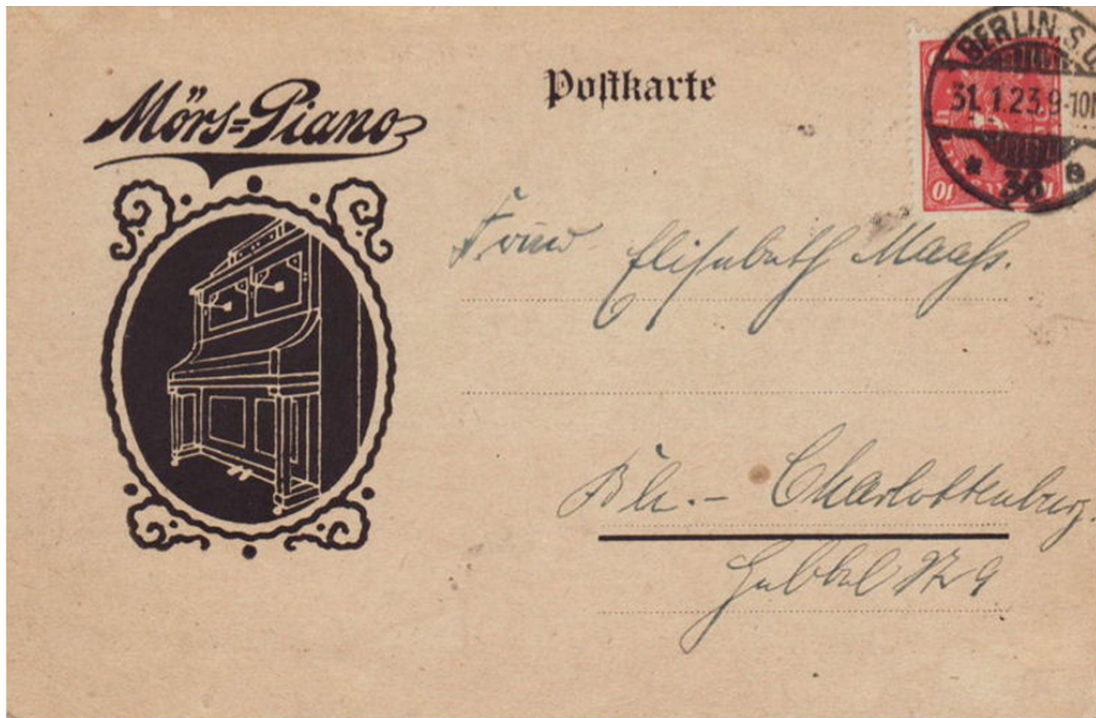 Mörs=Piano
Postkarte
BERLIN. S.O.
31.1.23.9-10N
* 36 a
10
Frau Elisabeth Maaß.
Bln.- Charlottenburg.